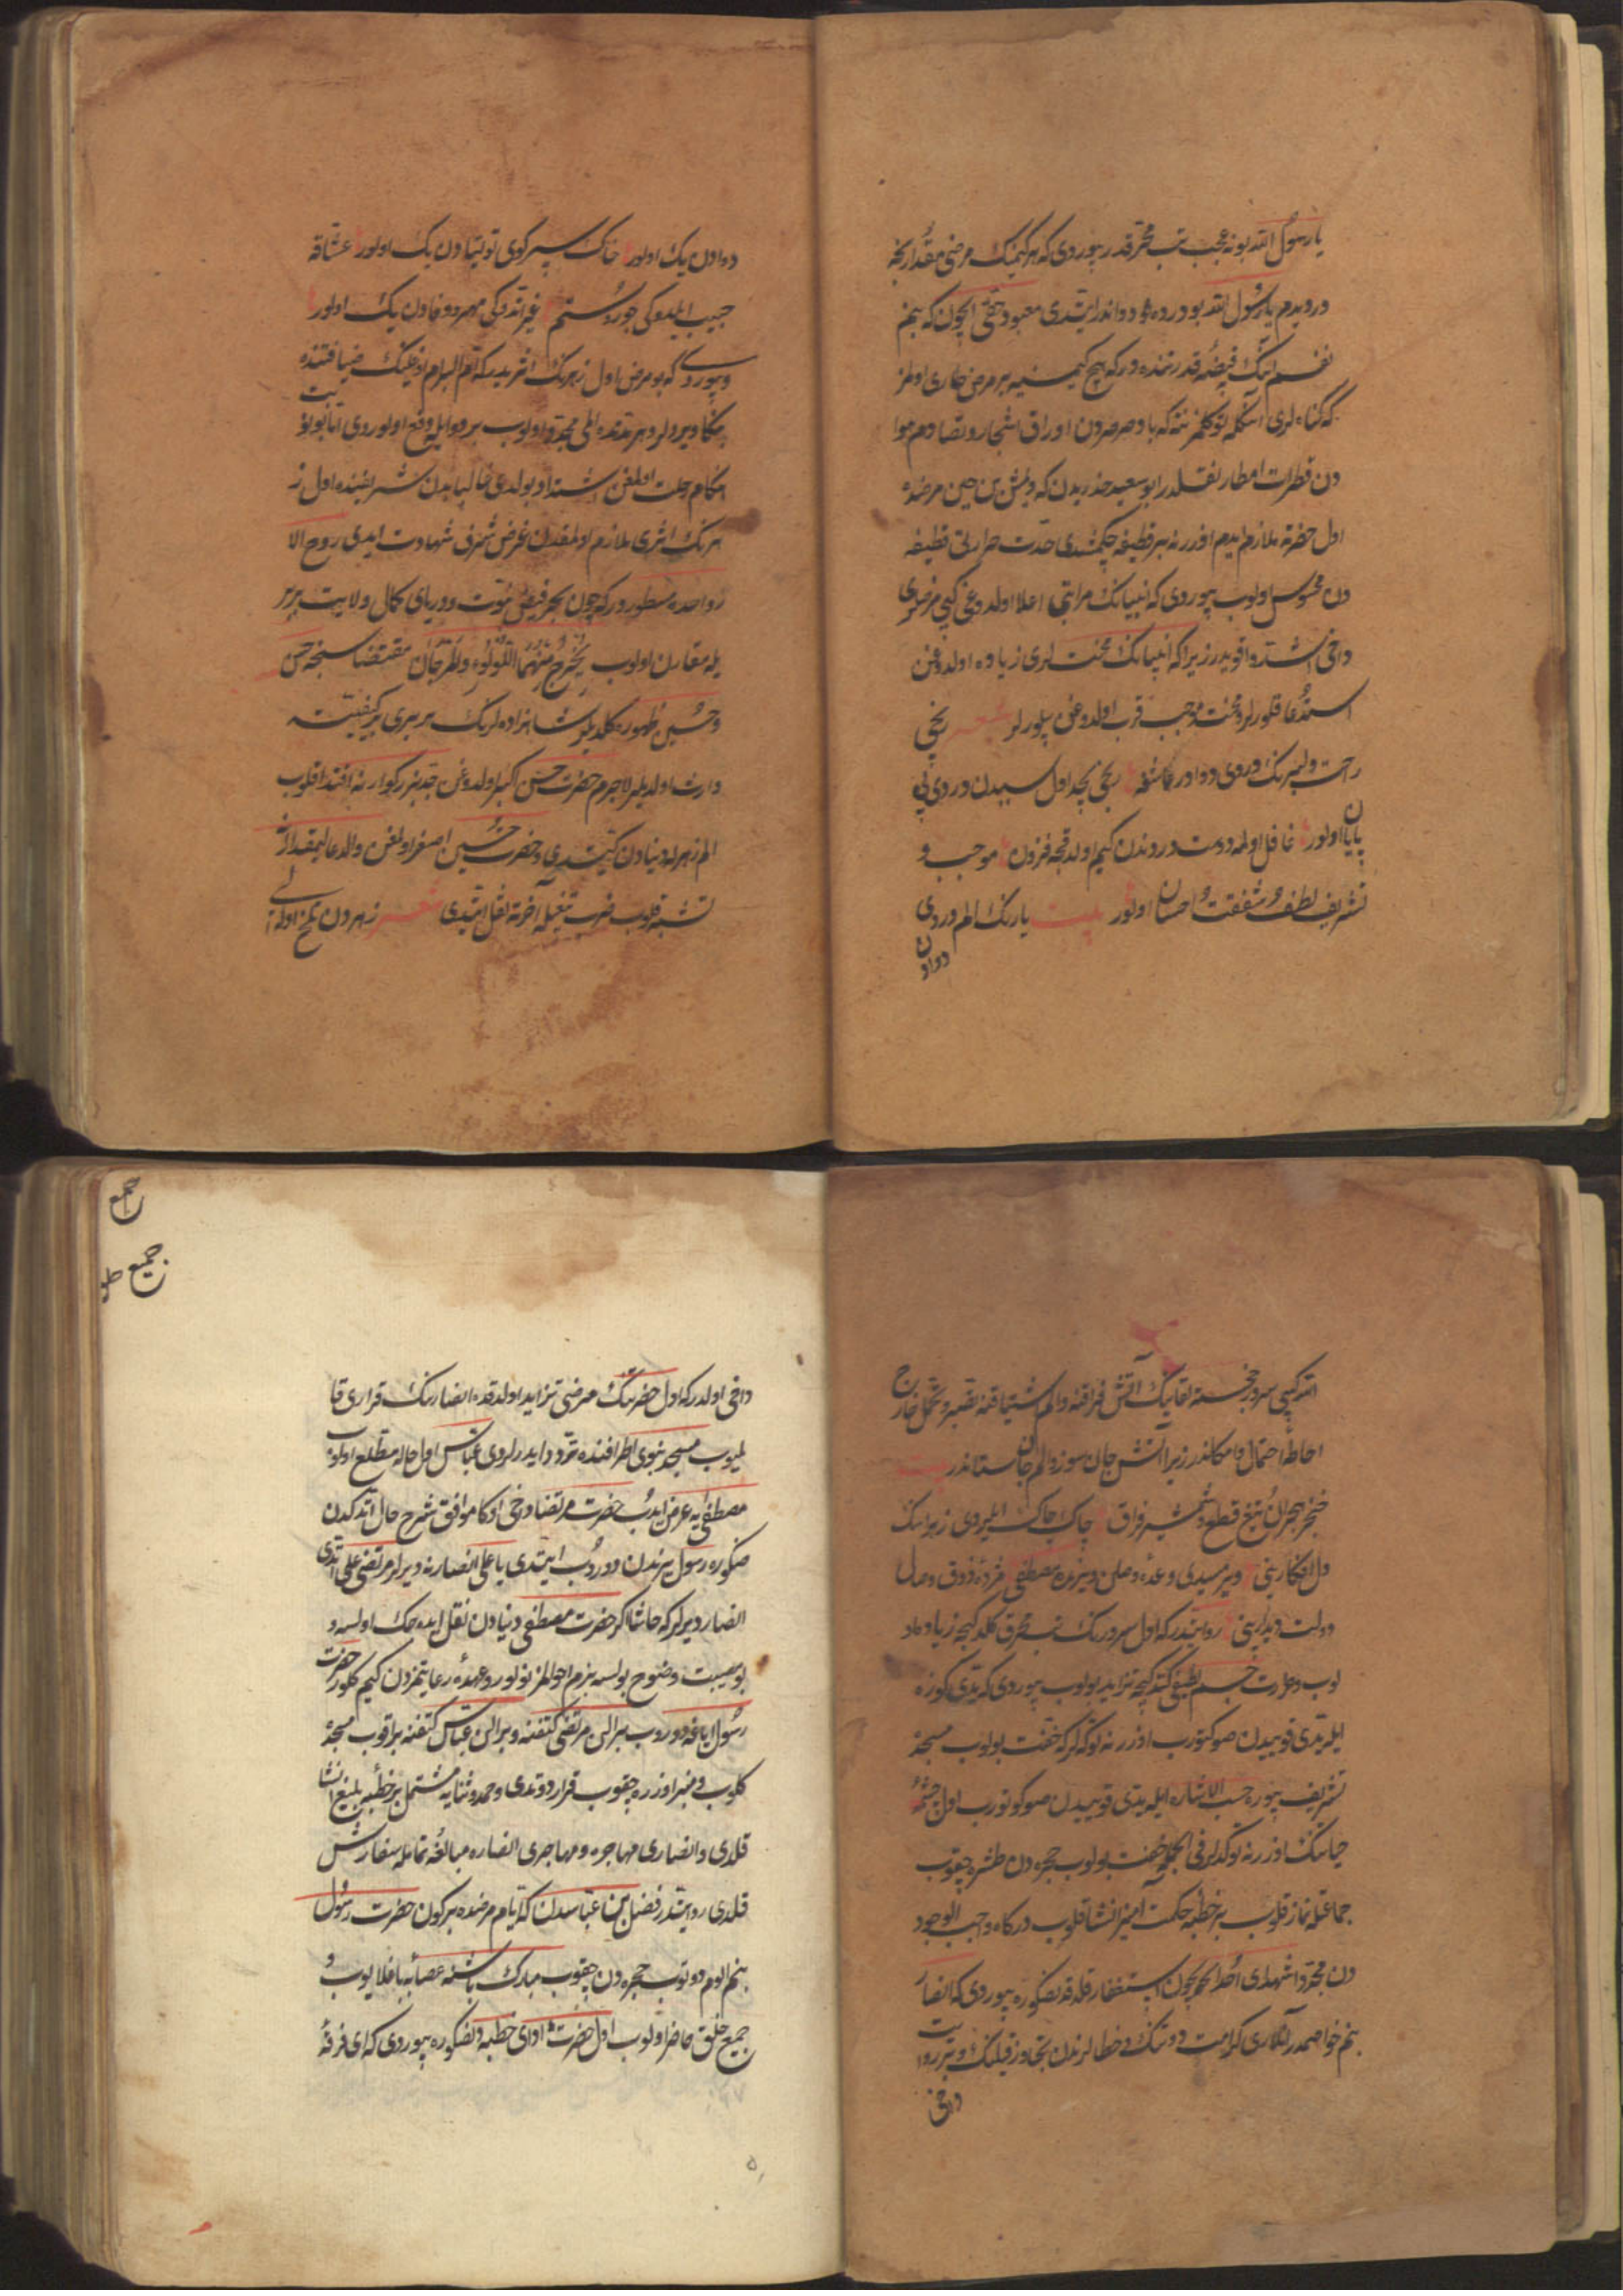 یا رسول الله بو نه عجب تب محرقدر بیوردی که هر کیمنک مرضی مقدارنجه
دردیدم یا رسول الله بو درده دوا ندر ایتدی معبود حقی ایچون که بنم
نفسم انک قبضهٔ قدرتنده در که هیچ کیمسنیه بر مرض طاری اولمز
که کناه لری آندن توکلمز نته که باد صرصردن اوراق اشجار و تصادم هوا
دن قطرات امطار نقلدر ابو سعید خدریدن که دیمش بن حین مرضده
اول حضرته ملازم ایدم اوزرنه بر قطیفه چکمشدی حدت حرارتی قطیفه
دن محسوس اولوب بیوردی که انبیانک مراتبی اعلا اولدوغی کبی مرضلری
داخی اشد و اقویدر زیرا که انبیانک محنت لری زیاده اولدوغن
استدعا قلورلر و محنت موجب قرب اولدوغن بیلورلر شعر رنجی
راحت دلبرنک دردی دوادر عاشقه رنجی بجد اول سببدن دردی بی
پایان اولور غافل اولمه دوست دردندن کیم اولدقجه فزون موجب و
تشریف لطف و شفقت و احسان اولور بیت یارنک الم دردی
دوادن
دوادن یک اولور خاک سر کوی توتیادن یک اولور عشاقه
حبیب ایلدوکی جور و ستم غیر اتدوکی مهر و وفادن یک اولور
و بیوردی که بو مرض اول زهرنک اثریدر که ام البرام اوغلینک ضیافتنده
بکا ویردلر و هر مدتده المی مجدد اولوب بر دوایله دفع اولوردی اما بو نوبت
هنکام رحلت اولمغن اشتداد بولدی غالبا بدن شریفنده اول ز
هرنک اثری ملازم اولمقدن غرض شرف شهادت ایدی روح الا
رواحده مسطور در که چون بحر فیض نبوت و دریای کمال ولایت بربر
یله مقارن اولوب یخرج منهما اللؤلؤ والمرجان مقتضاسنجه حسن
و حسین ظهوره کلدیلر شاهزاده لرنک هر بری بر کیفیته
وارث اولدیلر لاجرم حضرت حسن اکبر اولدوغن جد بزرکوارنه اقتدا قلوب
الم زهرله دنیادن کیتدی و حضرت حسین اصغر اولمغن والد عالیمقدارنه
تشبه قلوب ضرب تیغیله آخرته نقل ایتدی شعر زهردن تلخ اولدی
انتر کبی سرور خجسته لقانک آتش فراقنه و الم اشتیاقنه تصبر و تحمل خارج
احاطهٔ احتمال و امکاندر زیرا آتش جان سوز و الم جان ستاندر بیت
خنجر هجران تیغ قطع و شمشیر فراق چاک چاک ایلیردی زهرانک
دل افکارینی ویرمسیدی وعدهٔ وصلن ویرنده مصطفی مژدهٔ ذوق وصال
دولت دیدارینی روایتدر که اول سرورنک تب محرق کلدکجه زیاده او
لوب و حرارت جسم لطیفی کتدکجه تزاید بولوب بیوردی که یتدی کوزه
ایله یتدی قویدن صو کتورب اوزرنه توکه لر که خفت بولوب مسجده
تشریف بیوره حسب الاشاره ایله یتدی قویدن صو کتورب اول چشمهٔ
حیاتنک اوزرنه توکدلر فی الجمله خفت بولوب حجره دن طشره چقوب
جماعتله نماز قلوب بر خطبه حکمت آمیز انشا قلوب درکاه واجب الوجود
دن مجددا شهدای احد ایچون استغفار قلدقدنصکره بیوردی که انصار
بنم خواصمدر آنلاری کرامت دوتنک و خطالرندن تجاوز قیلنک و بر روایت
داخی
داخی اولدر که اول حضرتنک مرضی تزاید اولدقده انصارنک قراری قا
لمیوب مسجد نبوی اطرافنده تردد ایدرلردی عباس اول حاله مطلع اولوب
مصطفی یه عرض ایدب حضرت مرتضا داخی اوکا موافق شرح حال اتدکدن
صکره رسول یرندن دوروب ایتدی یا علی انصار نه دیرلر مرتضی علی اتدی
انصار دیرلر که حاشا اکر حضرت مصطفی دنیادن نقل ایده جک اولسه و
بو مصیبت وضوح بولسه بزم احوالمز نولور و عهدهٔ رعایتمزدن کیم کلور حضرت
رسول ایاغه دوروب بر الن مرتضی کتفنه و بر الن عباس کتفنه براقوب مسجده
کلوب و منبر اوزره چقوب قرار دوتدی و حمد و ثنایه مشتمل بر خطبه بلیغ انشا
قلدی و انصاری مهاجره و مهاجری انصاره مبالغهٔ تمامله سفارش
قلدی روایتدر فضل بن عباسدن که ایام مرضده بر کون حضرت رسول
بنم الوم دوتوب حجره دن چقوب مبارک باشنه عصابه باغلایوب و
جمیع خلق حاضر اولوب اول حضرت ادای خطبه دنصکره بیوردی که ای فرقهٔ
جمیع
جمیع